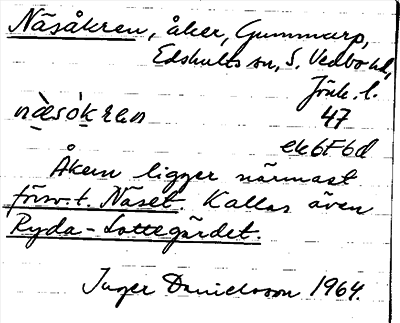 Näsåkren, åker, Gummarp,
Edshults sn, S. Vedbo hd,
Jönk. l.
næ̀só̀kren 47
ek6F6d
Åkern ligger närmast
försv.t. Näset. Kallas även
Ryda-Lottegärdet.
Inger Danielsson 1964.